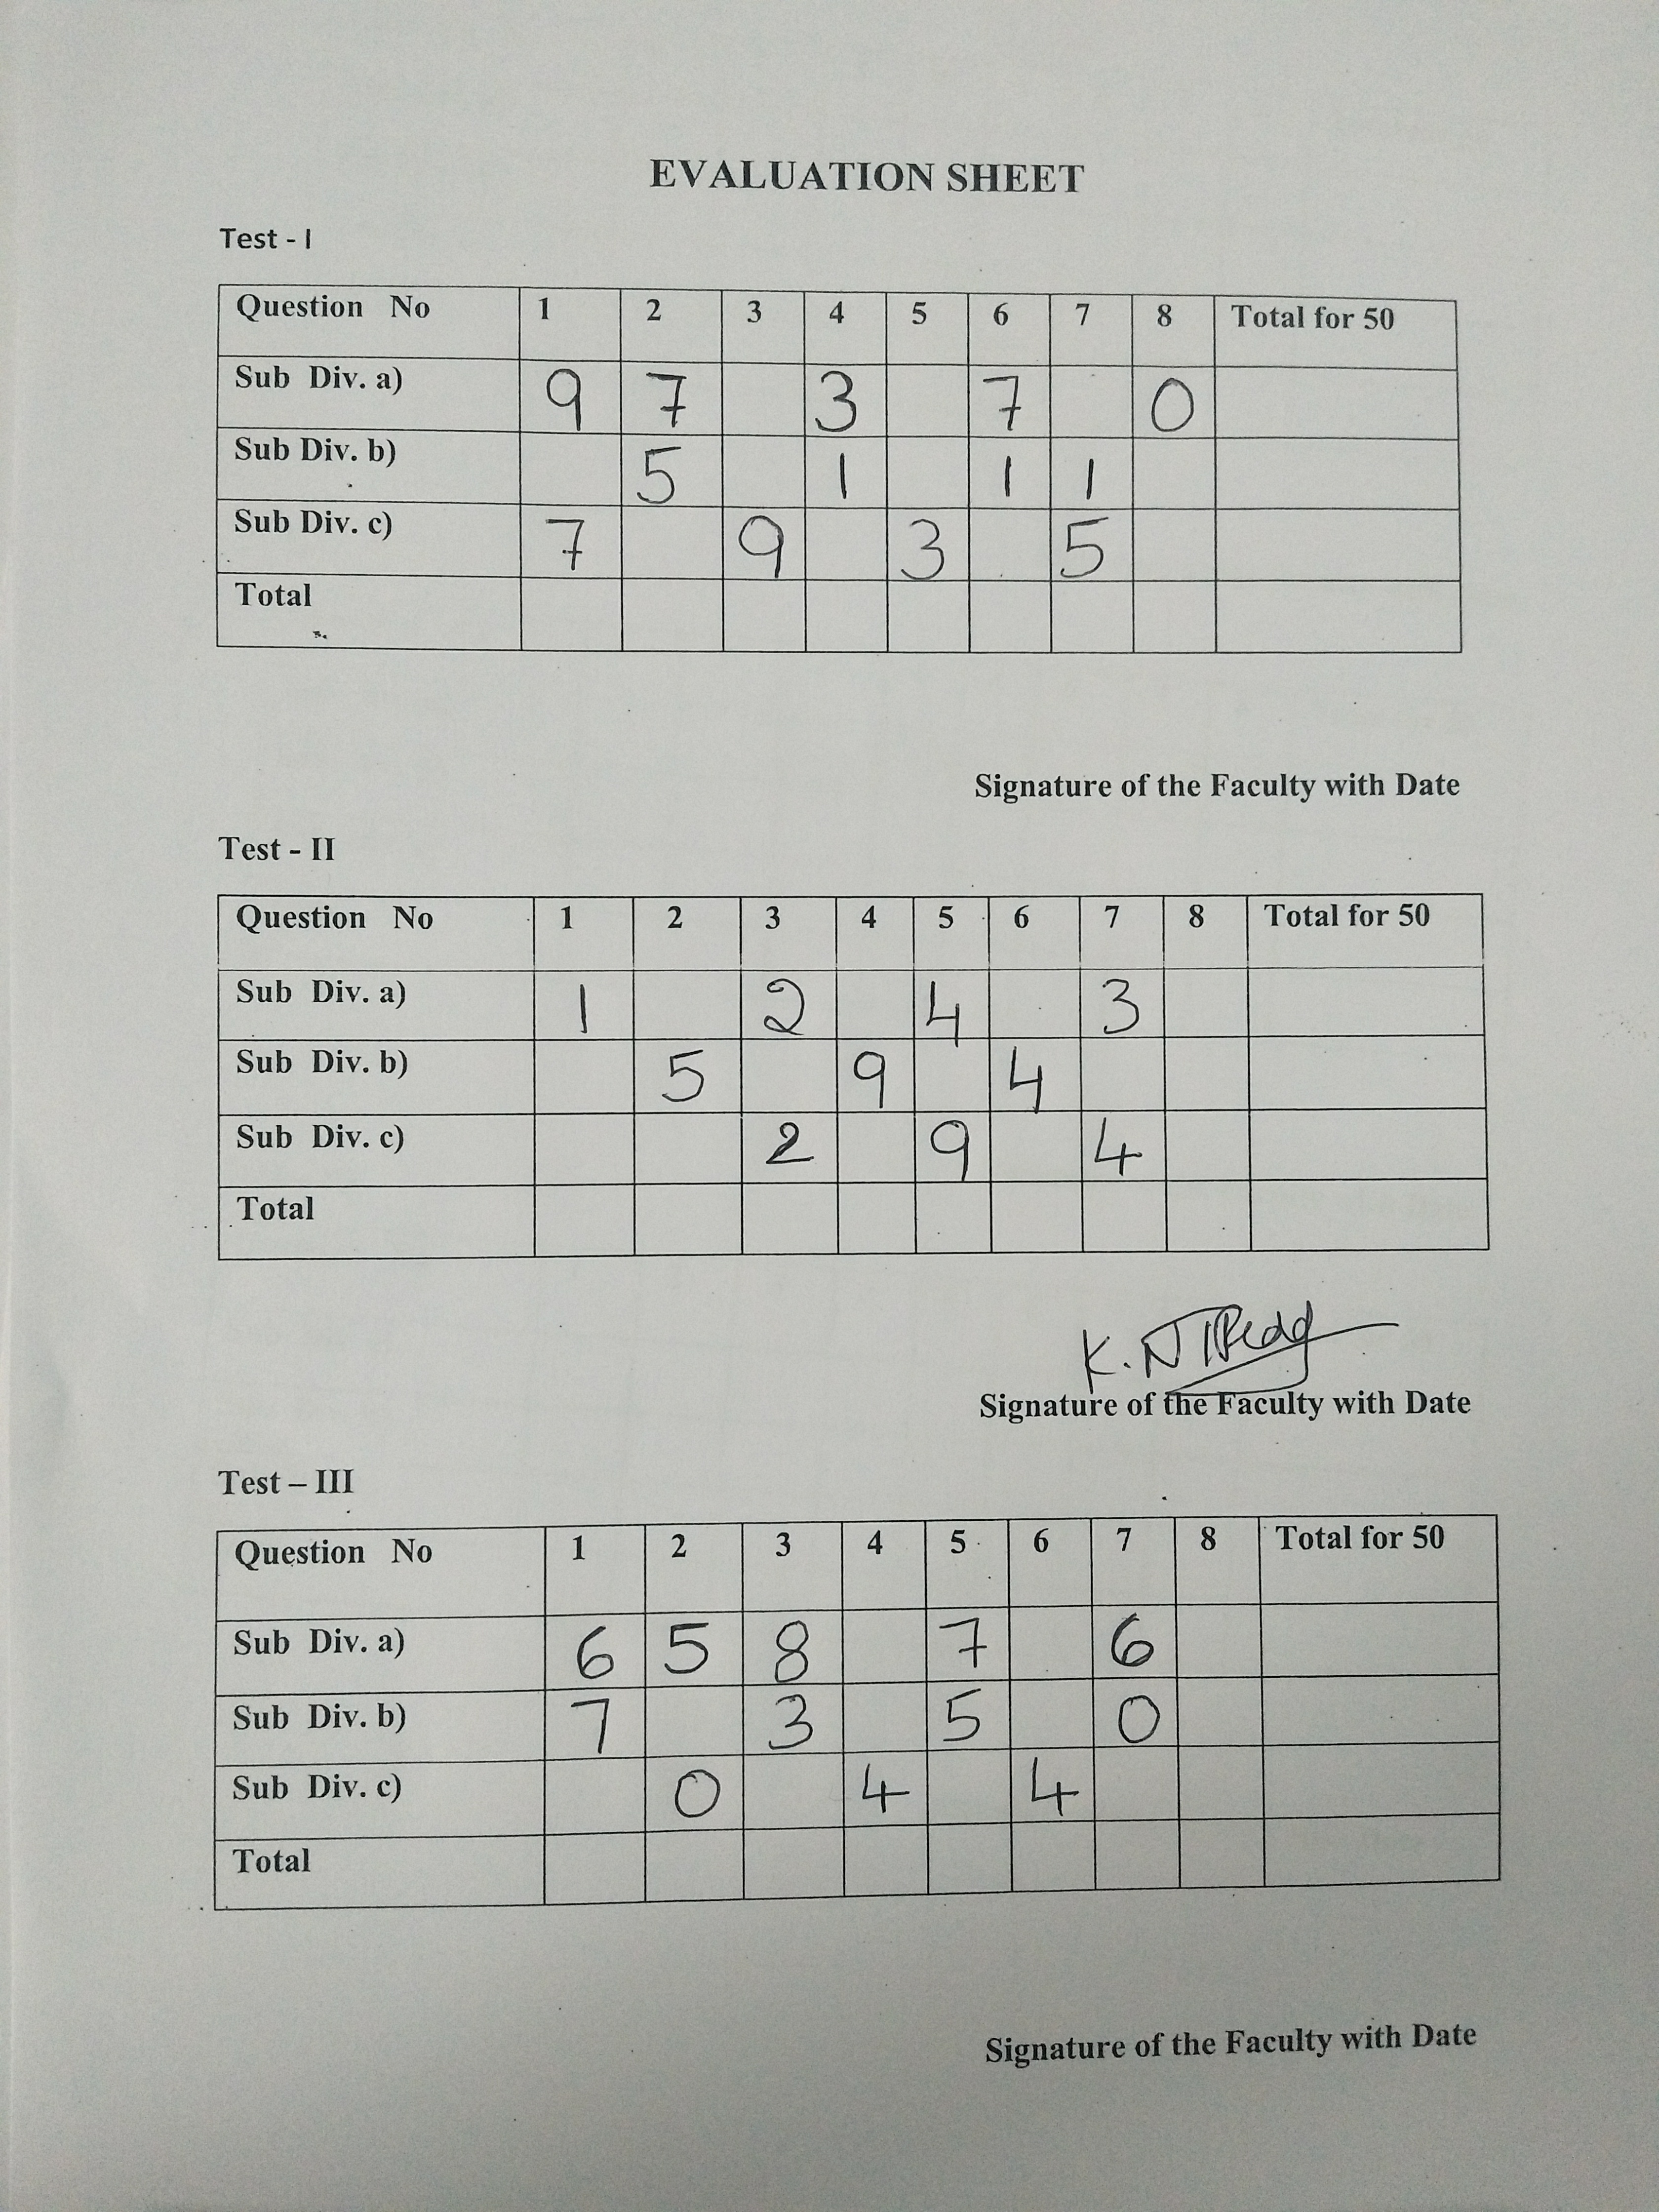 EVALUATION SHEET
Test - I
Question No 1 2 3 4 5 6 7 8 Total for 50
Sub Div. a) 9 7 3 7 0
Sub Div. b) 5 1 1 1
Sub Div. c) 7 9 3 5
Total
Signature of the Faculty with Date
Test - II
Question No 1 2 3 4 5 6 7 8 Total for 50
Sub Div. a) 1 2 4 3
Sub Div. b) 5 9 4
Sub Div. c) 2 9 4
Total
K. N
Signature of the Faculty with Date
Test – III
Question No 1 2 3 4 5 6 7 8 Total for 50
Sub Div. a) 6 5 8 7 6
Sub Div. b) 7 3 5 0
Sub Div. c) 0 4 4
Total
Signature of the Faculty with Date